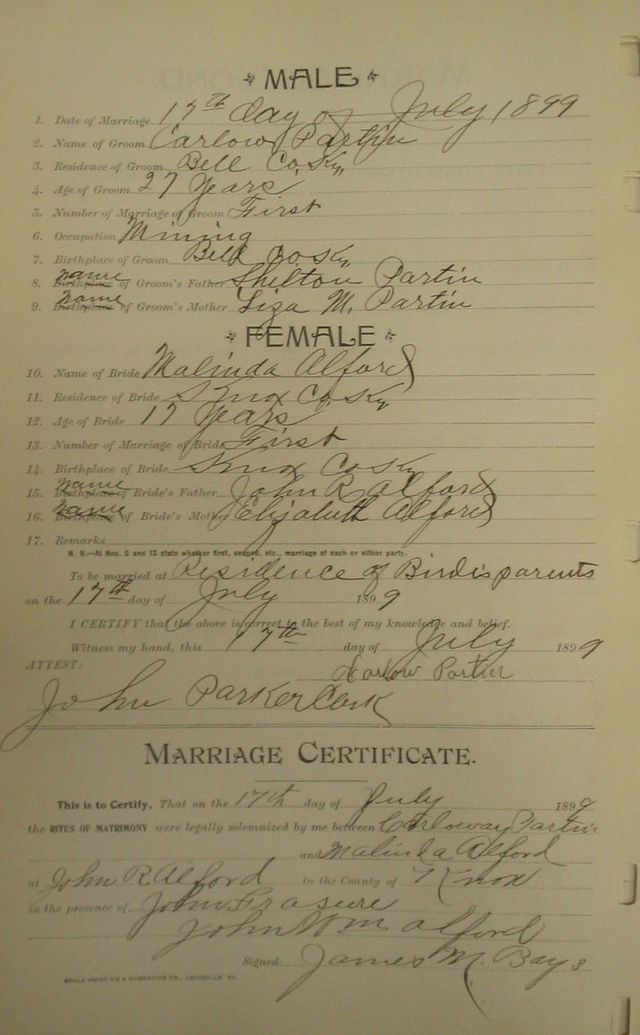 MALE
1. Date of Marriage 17th day of July 1899
2. Name of Groom Carlow Partin
3. Residence of Groom Bell Co, Ky,
4. Age of Groom 27 Years
5. Number of Marriage of Groom First
6. Occupation Mining
7. Birthplace of Groom Bell Co Ky
name
8. Birthplace of Groom's Father Shelton Partin
name
9. Birthplace of Groom's Mother Liza M. Partin
FEMALE
10. Name of Bride Malinda Alford
11. Residence of Bride Knox Co, Ky
12. Age of Bride 17 Years
13. Number of Marriage of Bride First
14. Birthplace of Bride Knox Co Ky
name
15. Birthplace of Bride's Father John R Alford
name
16. Birthplace of Bride's Mother Elizabeth Alford
17. Remarks
N. B.—At Nos. 5 and 13 state whether first, second, etc., marriage of each or either party.
To be married at Residence of Birdis parents
on the 17th day of July 1899
I CERTIFY that the above is correct to the best of my knowledge and belief.
Witness my hand, this 17th day of July 1899
ATTEST:
Carlow Partin
John Parker Clerk
MARRIAGE CERTIFICATE.
This is to Certify, That on the 17th day of July 1899
the RITES OF MATRIMONY were legally solemnized by me between Carloway Partin
and Malinda Alford
at John R Alford in the County of Knox
in the presence of John Frasure
John Wm alford
Signed: James M. Bays